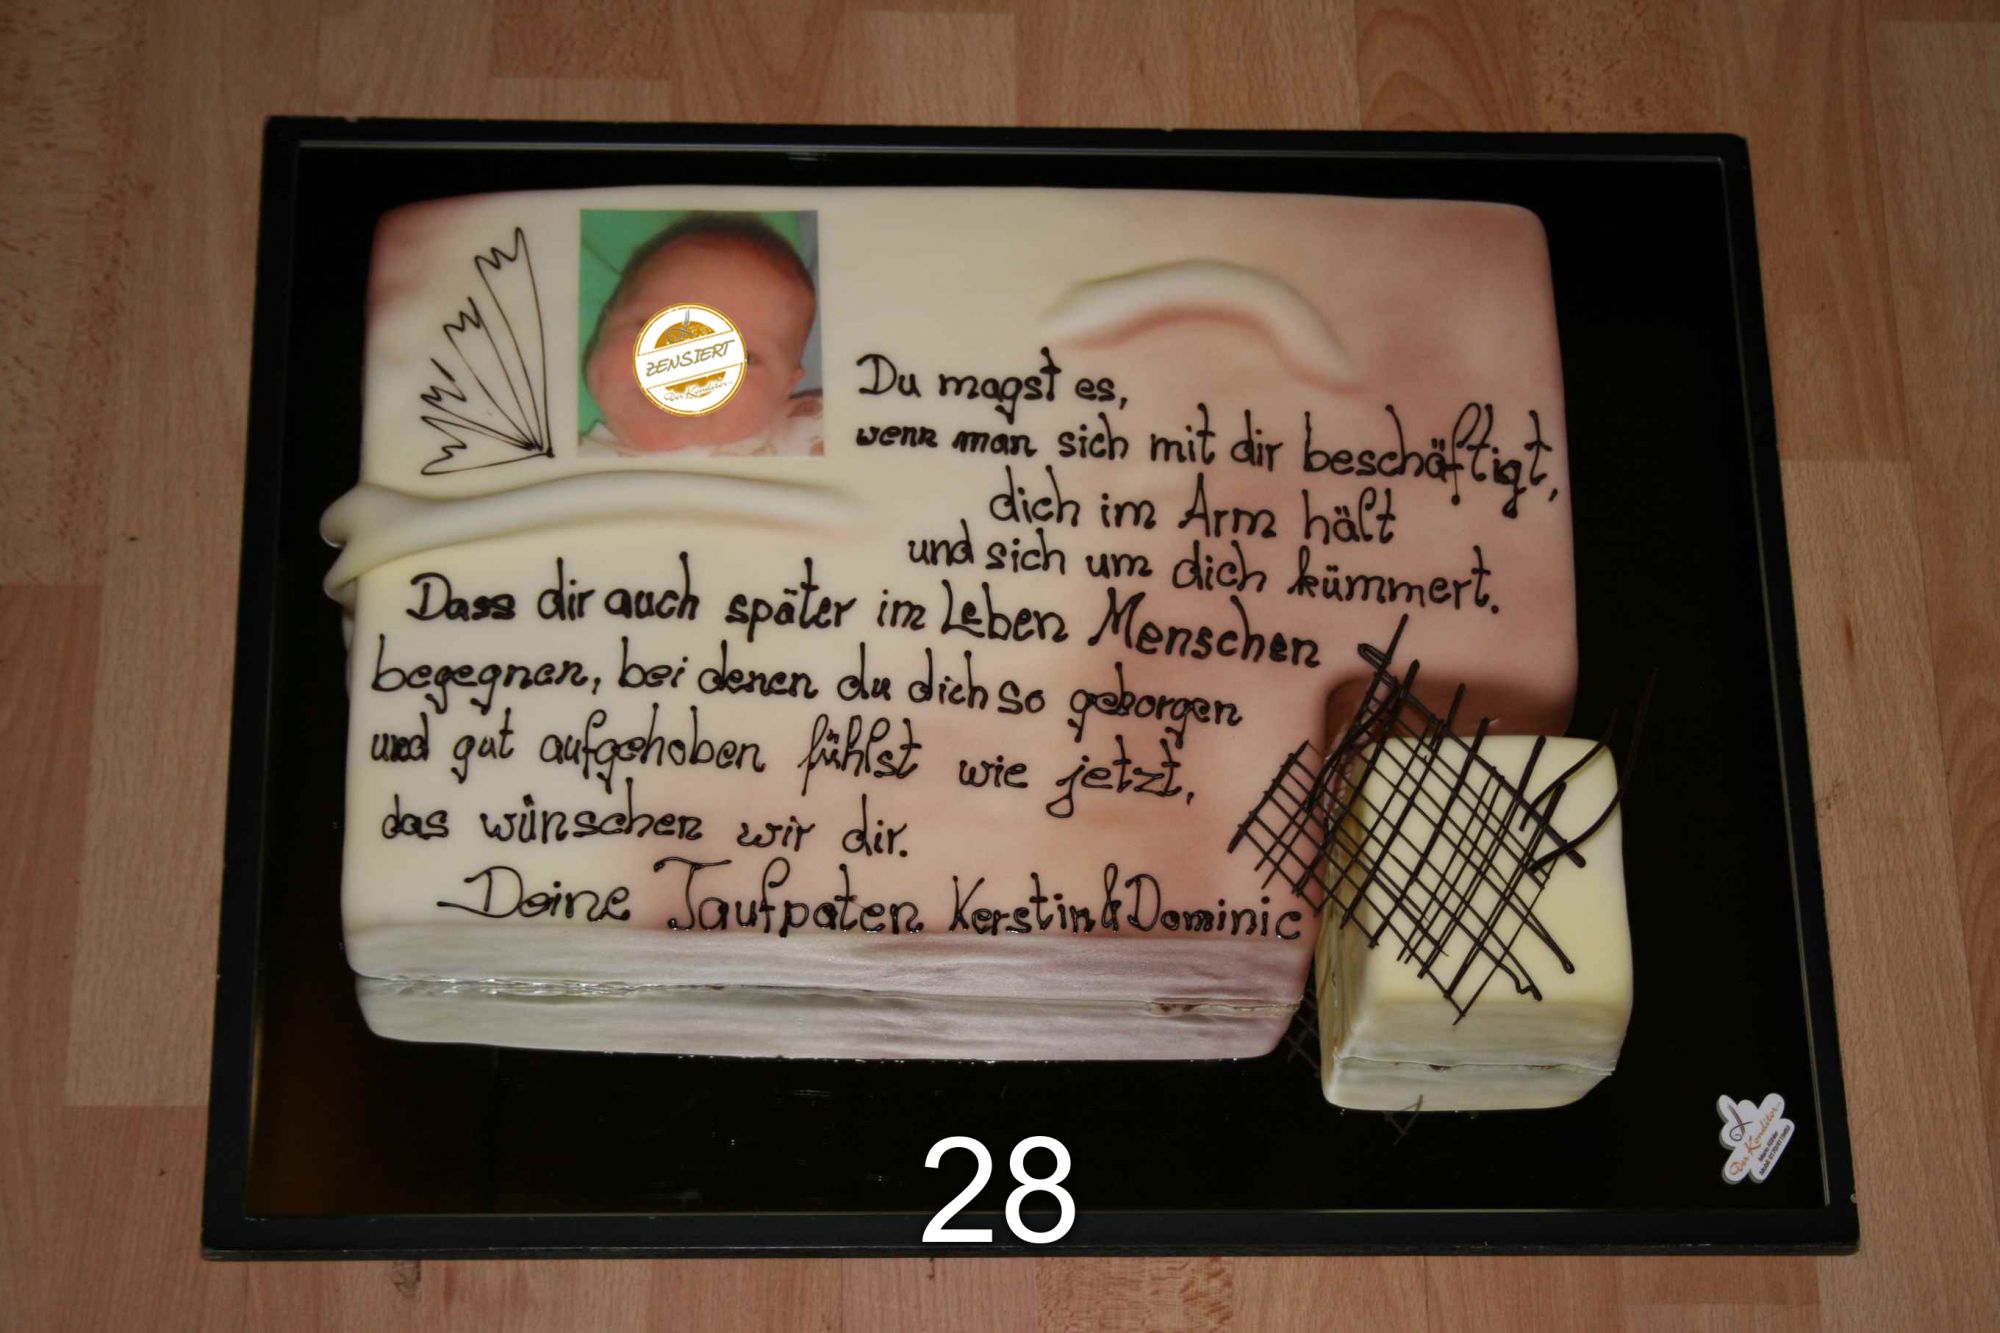 ZENSIERT
Der Konditor
Du magst es,
wenn man sich mit dir beschäftigt,
dich im Arm hält
und sich um dich kümmert.
Dass dir auch später im Leben Menschen
begegnen, bei denen du dich so geborgen
und gut aufgehoben fühlst wie jetzt,
das wünschen wir dir.
Deine Taufpaten Kerstin & Dominic
Der Konditor
28